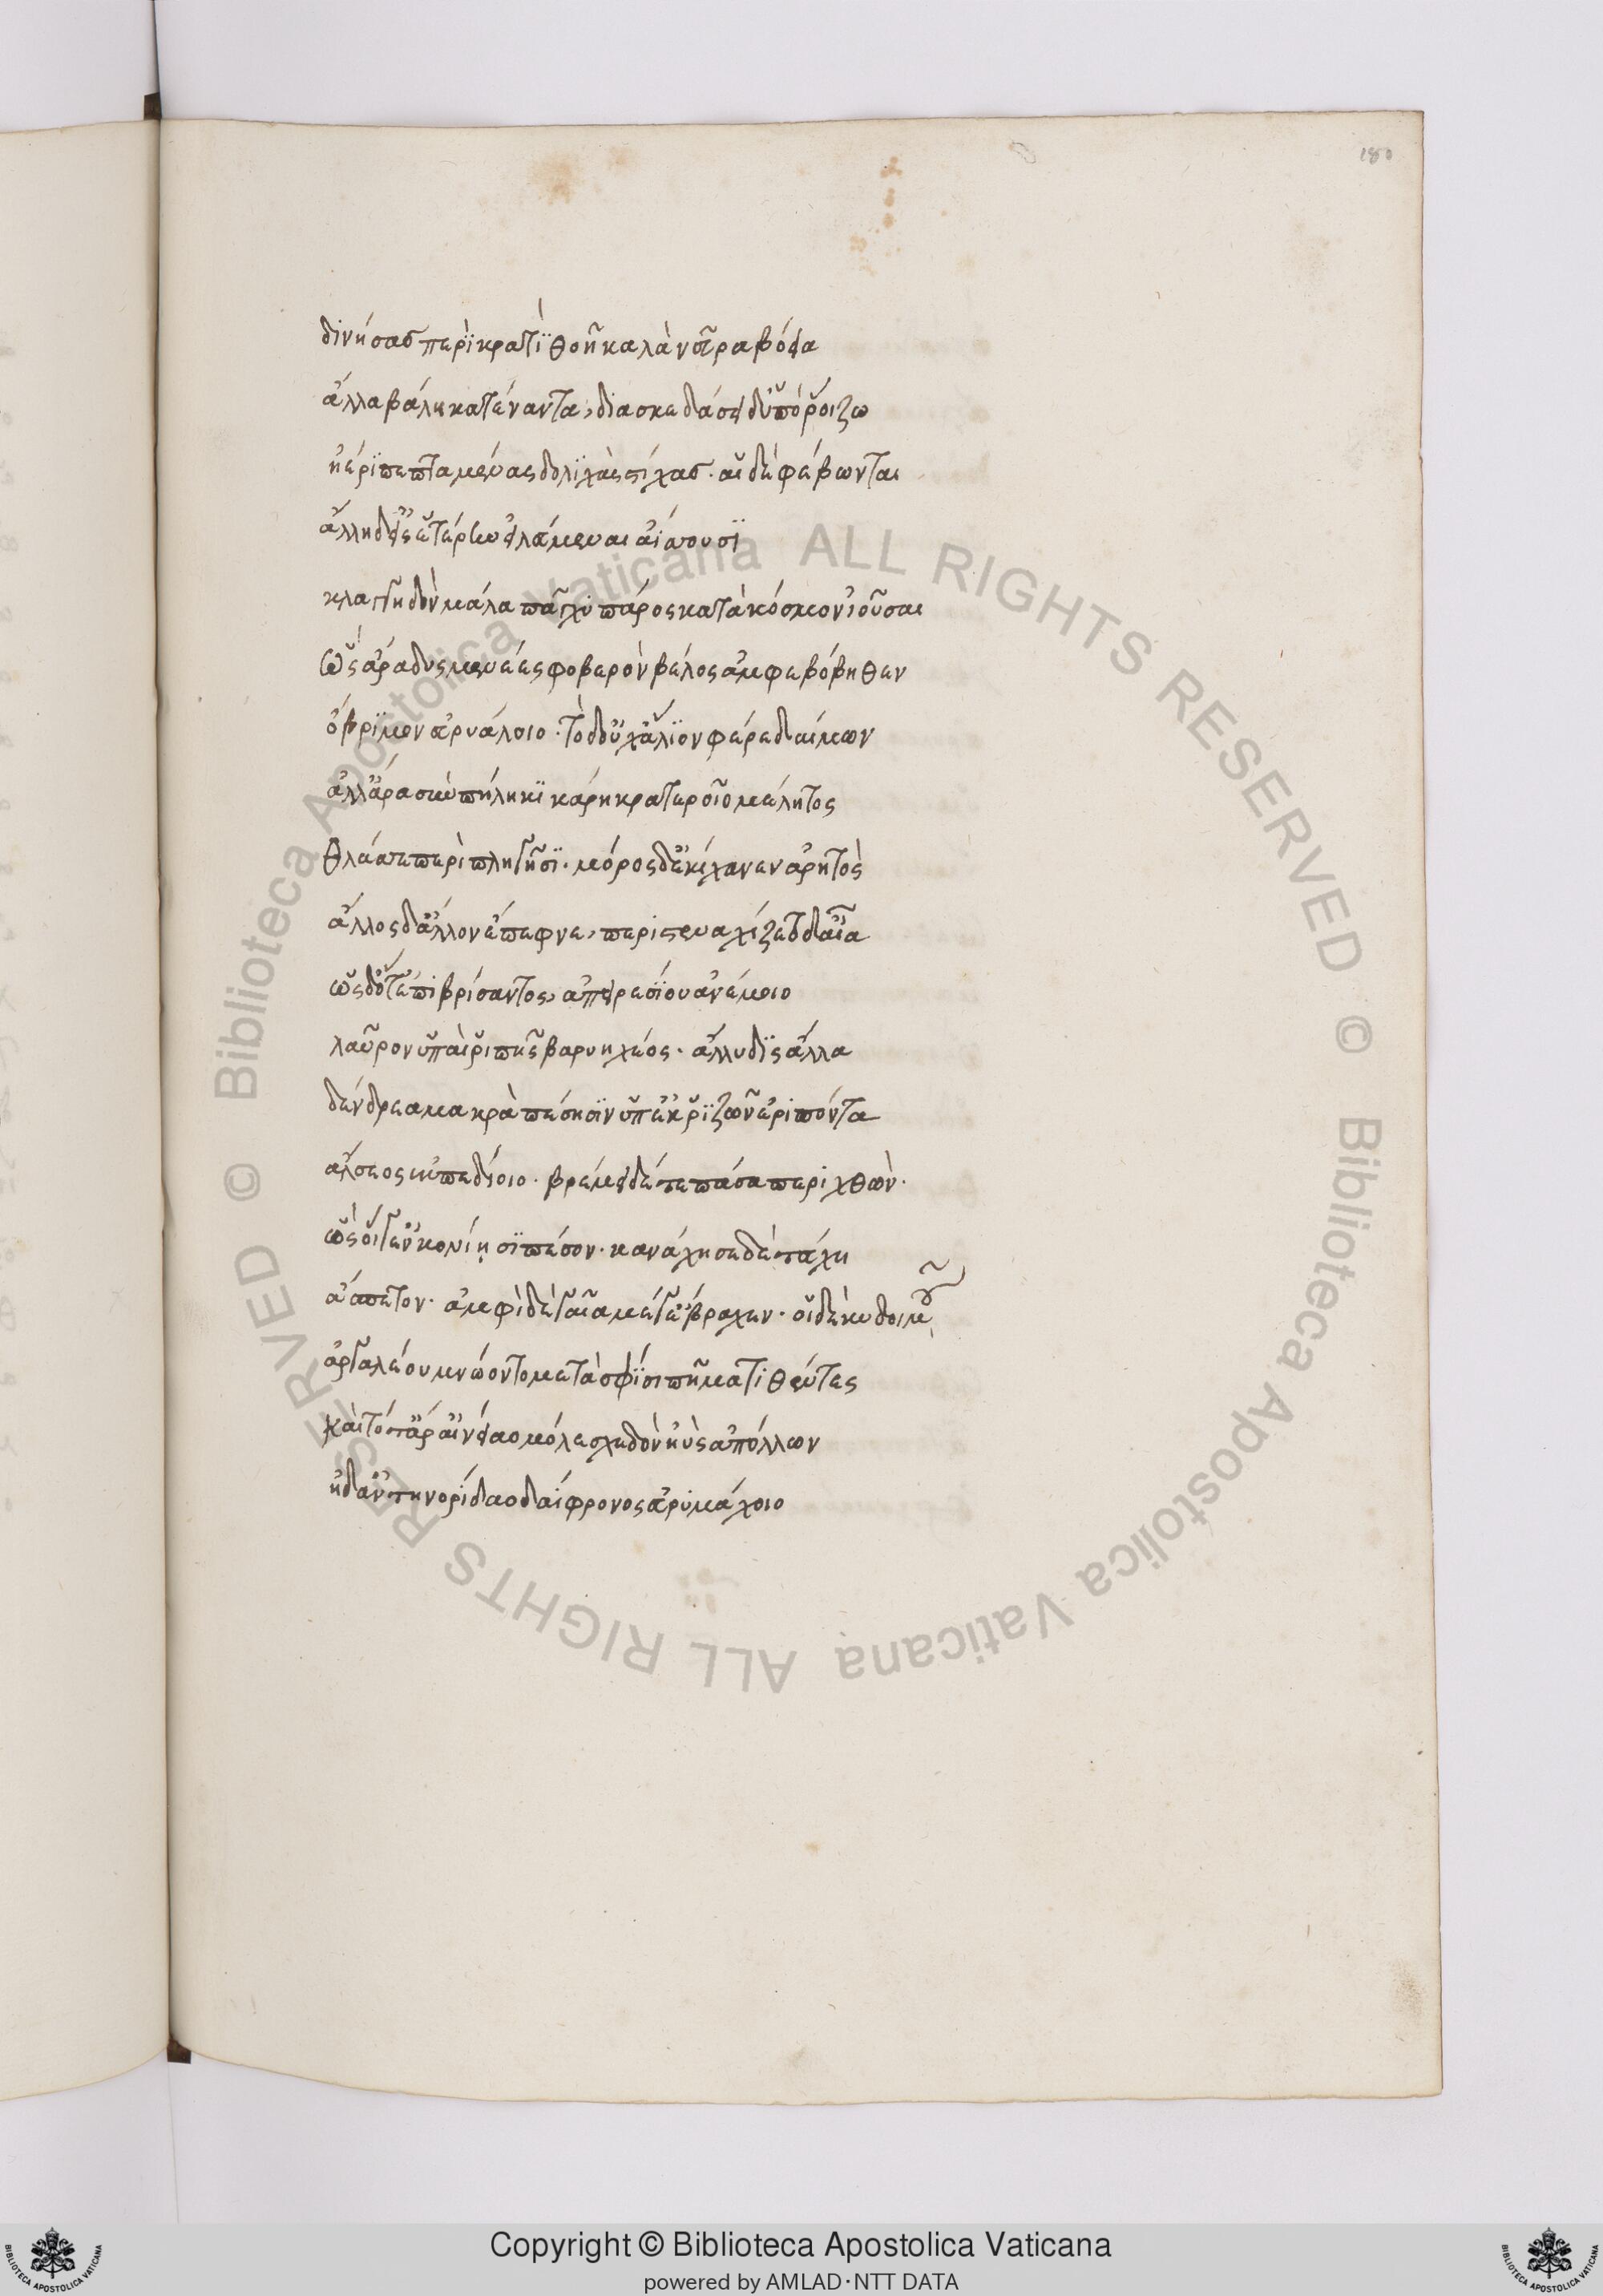 180
δινήσας περὶ κρατὶ θοῆ καλὰ νεῦρα βόεια
ἄλλα βάλη κατέναντα, διασκεδάσει δ' ὑπὸ ῥοίζω
ἠέρι πεπταμένας δολιχὰς στίχας· αἱ δὲ φέβωνται
ἄλλη δ' εἰς ἑτέρην εἰλάμεναι ἀΐσσουσι
κλαγγηδὸν μάλα πάγχυ πάρος κατὰ κόσμον ἰοῦσαι
ὣς ἄρα δυσμενέες φοβερὸν βέλος ἀμφεβόβηθεν
ὄβριμον ἀρυάλοιο· τὸ δ' οὐχ ἅλιον φέρε δαίμων
ἀλλ' ἄρα σὺν πήληκι κάρη κρατεροῖο μέλητος
θλάσσε περὶ πληγῆσι· μόρος δ' ἐκίχανεν ἀρητὸς
ἄλλος δ' ἄλλον ἔπεφνε, περιστεναχίζετο δ' αἶα
ὡς δ' ὅτ' ἐπιβρίσαντος, ἀπειρεσίου ἀνέμοιο
λαῦρον ὑπαὶ ῥιπῆς βαρυηχέος· ἄλλυδις ἄλλα
δένδρεα μακρὰ πέσησιν ὑπ' ἐκ ῥιζῶν ἐριπόντα
ἄλσεος εὐπεδίοιο· βρέμει δέ τε πᾶσα περὶ χθών·
ὣς οἵ γ' ἐν κονίησι πέσον· κανάχησε δὲ τεύχη
ἄσπετον· ἀμφὶ δὲ γαῖα μέγ' ἔβραχεν· οἱ δὲ κυδοιμοῦ
ἀργαλέου μνώοντο μετὰ σφίσι πῆμα τιθέντες
καὶ τότ' ἄρ' αἰνείαο μόλε σχεδὸν ἠῢς ἀπόλλων
ἠδ' ἀντηνορίδαο δαΐφρονος ἀρυμάχοιο
Copyright © Biblioteca Apostolica Vaticana
powered by AMLAD·NTT DATA